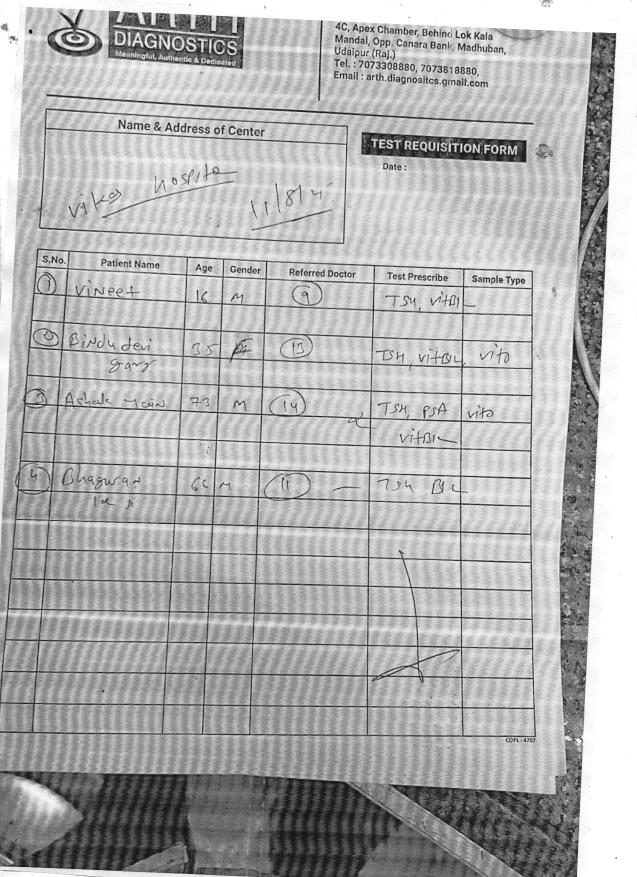 ARTH
DIAGNOSTICS
Meaningful, Authentic & Dedicated
4C, Apex Chamber, Behind Lok Kala
Mandal, Opp. Canara Bank, Madhuban,
Udaipur (Raj.)
Tel. : 7073308880, 7073818880,
Email : arth.diagnositcs.gmail.com
Name & Address of Center
TEST REQUISITION FORM
Date :
Hospital
11/8/21
S.No. Patient Name Age Gender Referred Doctor Test Prescribe Sample Type
1 Vineet 16 M 9 TSH, VitB12
2 Bindu devi 35 F 13 TSH, VitB12, VitD
3 Ashok 73 M 14 TSH, PSA VitD
VitB12
4 Bhagwan M 11 — TSH B12
COPL-4707